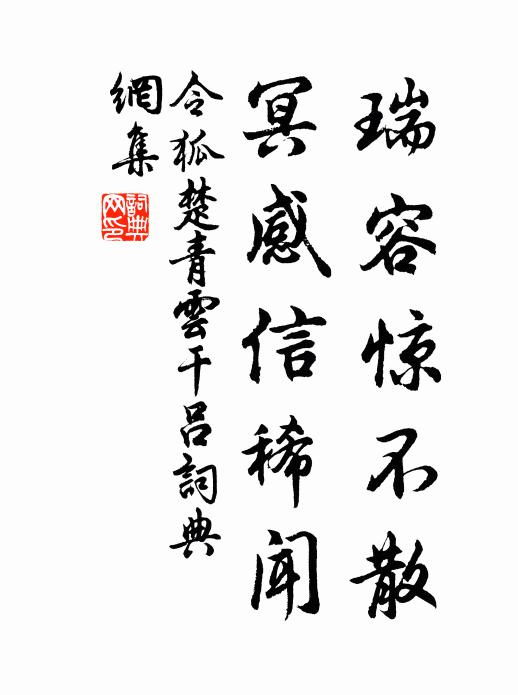 瑞容惊不散
冥感信稀闻
令狐楚青雲干吕詞典
網集
詞典
网印